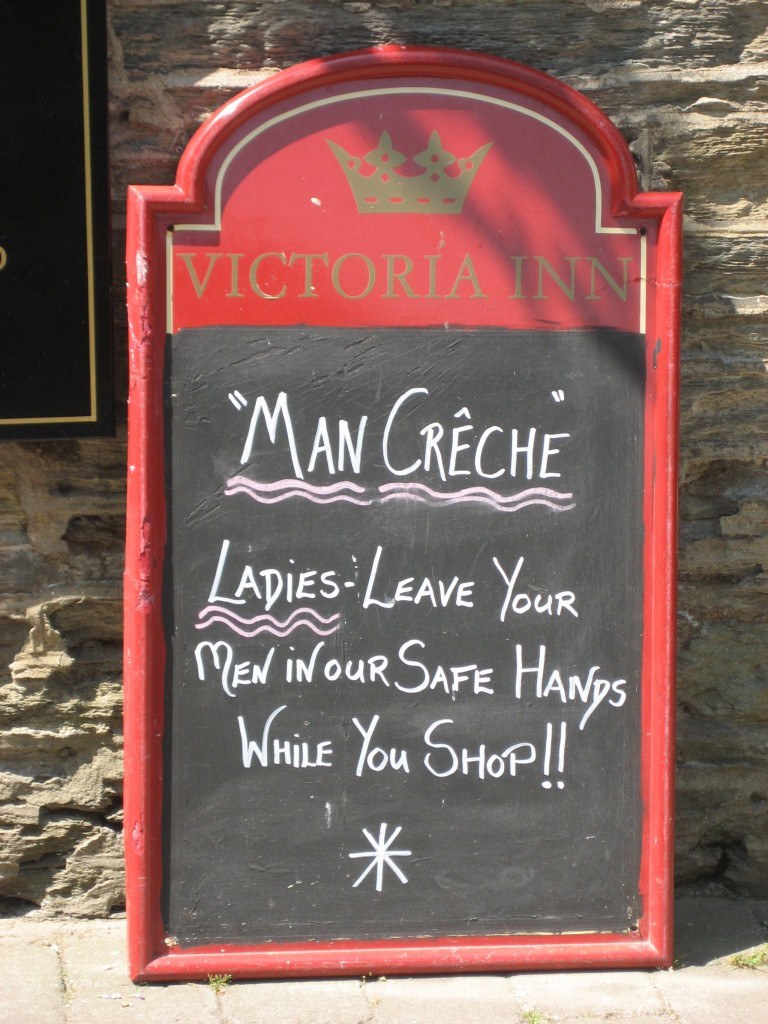 VICTORIA INN
"MAN CRÊCHE"
LADIES-LEAVE YOUR
MEN IN OUR SAFE HANDS
WHILE YOU SHOP!!